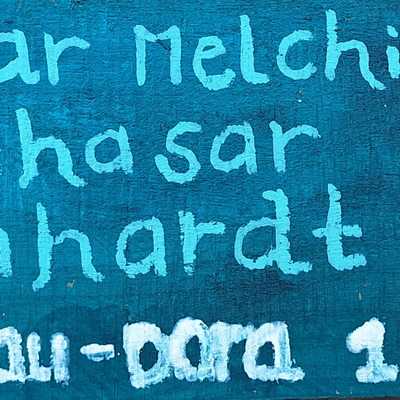 ar Melchi
hasar
hardt
au-Dara 1